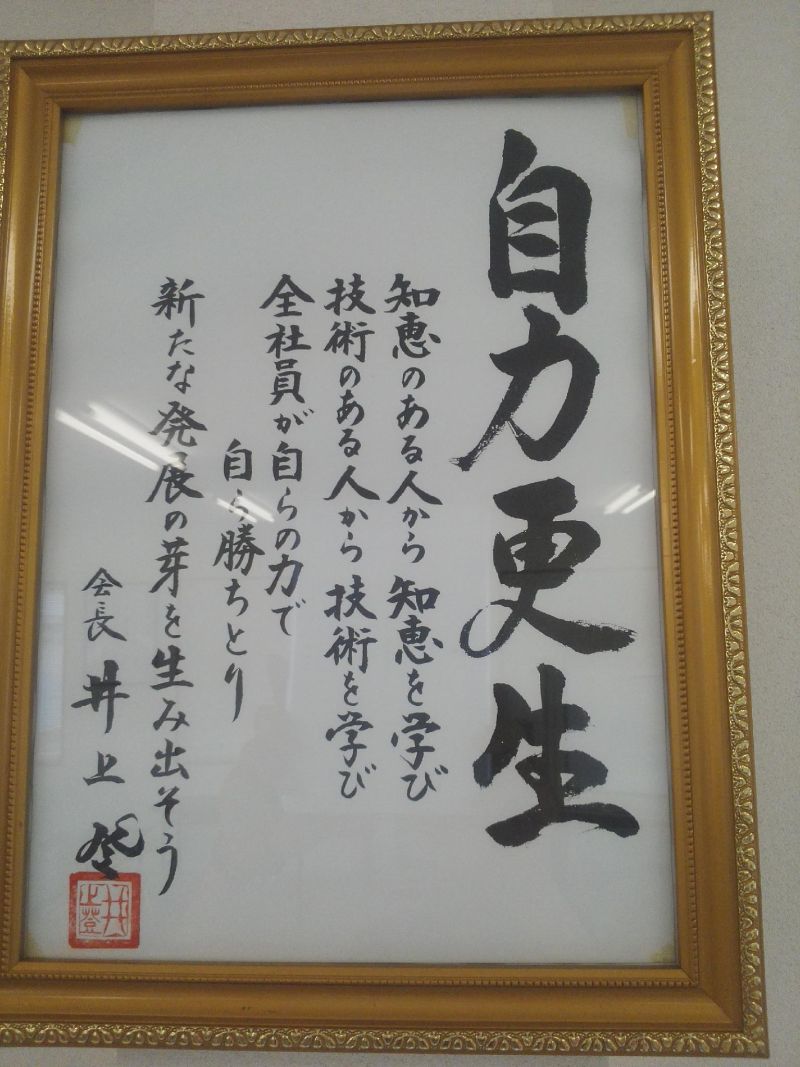 自力更生
知恵のある人から知恵を学び
技術のある人から技術を学び
全社員が自らの力で
自ら勝ちとり
新たな発展の芽を生み出そう
会長 井上登
井上登